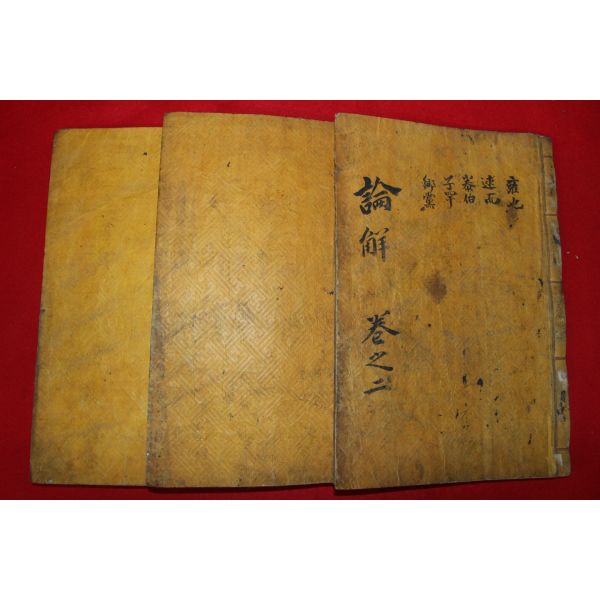 雍也
述而
泰伯
子罕
鄕黨
論解 卷之二